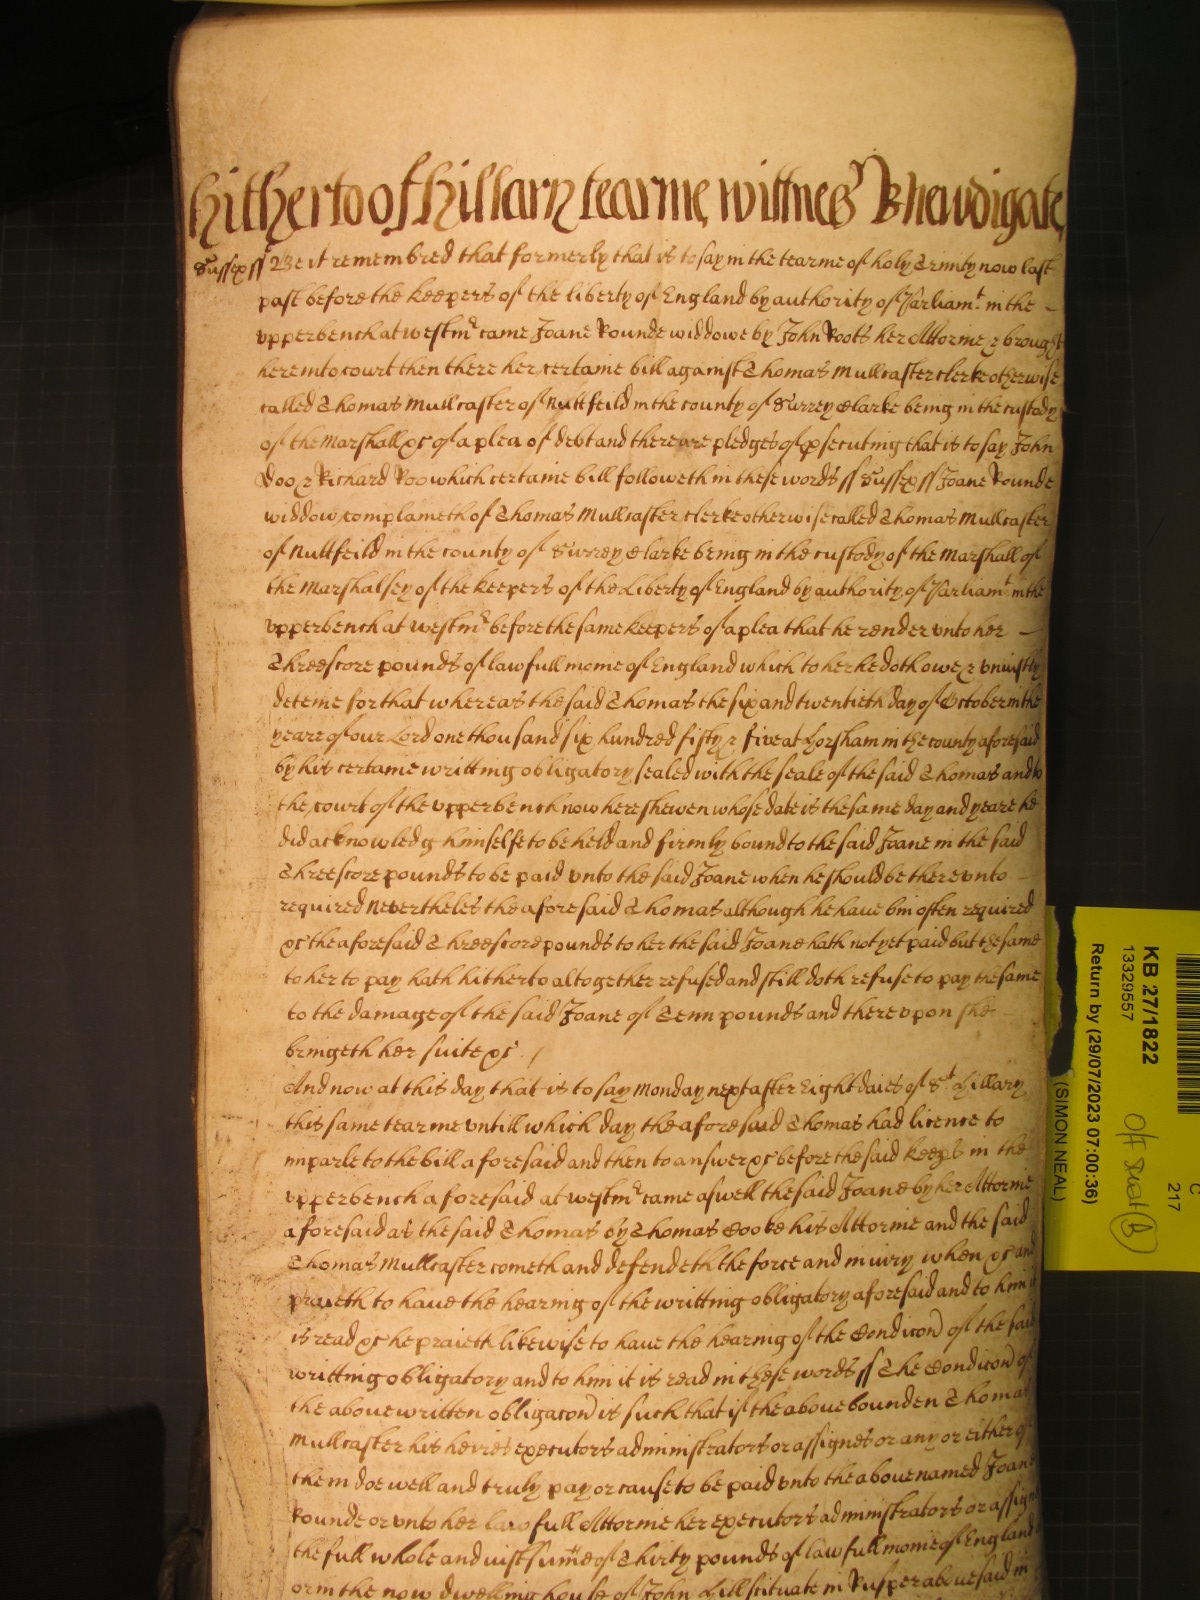 hitherto of Hillary tearme wittnes R Newdigate
Sussex ss Be it remembred that formerly that is to say in the tearme of holy Trinity now last
past before the keepers of the liberty of England by authority of Parliamt. in the
upper bench at westmr came Joane Rounde widdowe by John Roots her Attorine & brought
here into court then there her certaine bill against Thomas Mullcaster clerke otherwise
called Thomas Mullcaster of Nuttfeild in the county of Surrey Clarke being in the custody
of the Marshall &c of a plea of debt and there are pledges of psecuting that is to say John
Doo & Richard Roo which certaine bill followeth in these words ss Sussex ss Joane Rounde
widdow complaineth of Thomas Mullcaster clerke otherwise called Thomas Mullcaster
of Nuttfeild in the county of Surrey Clarke being in the custody of the Marshall of
the Marshalsey of the keepers of the Liberty of England by authority of Parliamt. in the
upper bench at westmr before the same keepers of a plea that he render unto her
Threescore pounds of lawfull monie of England which to her he doth owe & uniustly
deteine for that whereas the said Thomas the six and twentieth day of October in the
yeare of our Lord one thousand six hundred fifty & five at Horsham in the county aforesaid
by his certaine writting obligatory sealed with the seale of the said Thomas and to
the court of the upper bench now here shewen whose date is the same day and yeare he
did acknowledg himselfe to be held and firmly bound to the said Joane in the said
Threescore pounds to be paid unto the said Joane when he should be thereunto
required Neverthelес the aforesaid Thomas although he have bin often required
&c the aforesaid Threescore pounds to her the said Joane hath not yet paid but the same
to her to pay hath hitherto altogether refused and still doth refuse to pay the same
to the damage of the said Joane of Tenn pounds and thereupon she
bringeth her suite &c
And now at this day that is to say Monday next after Eight daies of St. Hillary
this same tearme untill which day the aforesaid Thomas had licence to
imparle to the bill aforesaid and then to answer &c before the said keeps in the
upper bench aforesaid at westmr came aswell the said Joane by her Attornie
aforesaid as the said Thomas by Thomas Cooke his Attornie and the said
Thomas Mullcaster cometh and defendeth the force and iniury when &c and
praieth to have the hearing of the writting obligatory aforesaid and to him it
is read &c he praieth likewise to have the hearing of the Condicon of the said
writting obligatory and to him it is read in these words ss The Condicon of
the above written obligacon is such that if the above bounden Thomas
Mullcaster his heires executors administrators or assignes or any or either of
them doe well and truly pay or cause to be paid unto the above named Joane
Rounde or unto her lawfull Attornie her executors administrators or assign
the full whole and iust summe of Thirty pounds of lawfull monie of England
or in the now dwelling house of John Lill scituate in Rusper abovesaid in
KB 27/1822
13329557
Return by (29/07/2023 07:00:36)
(SIMON NEAL)
C
217